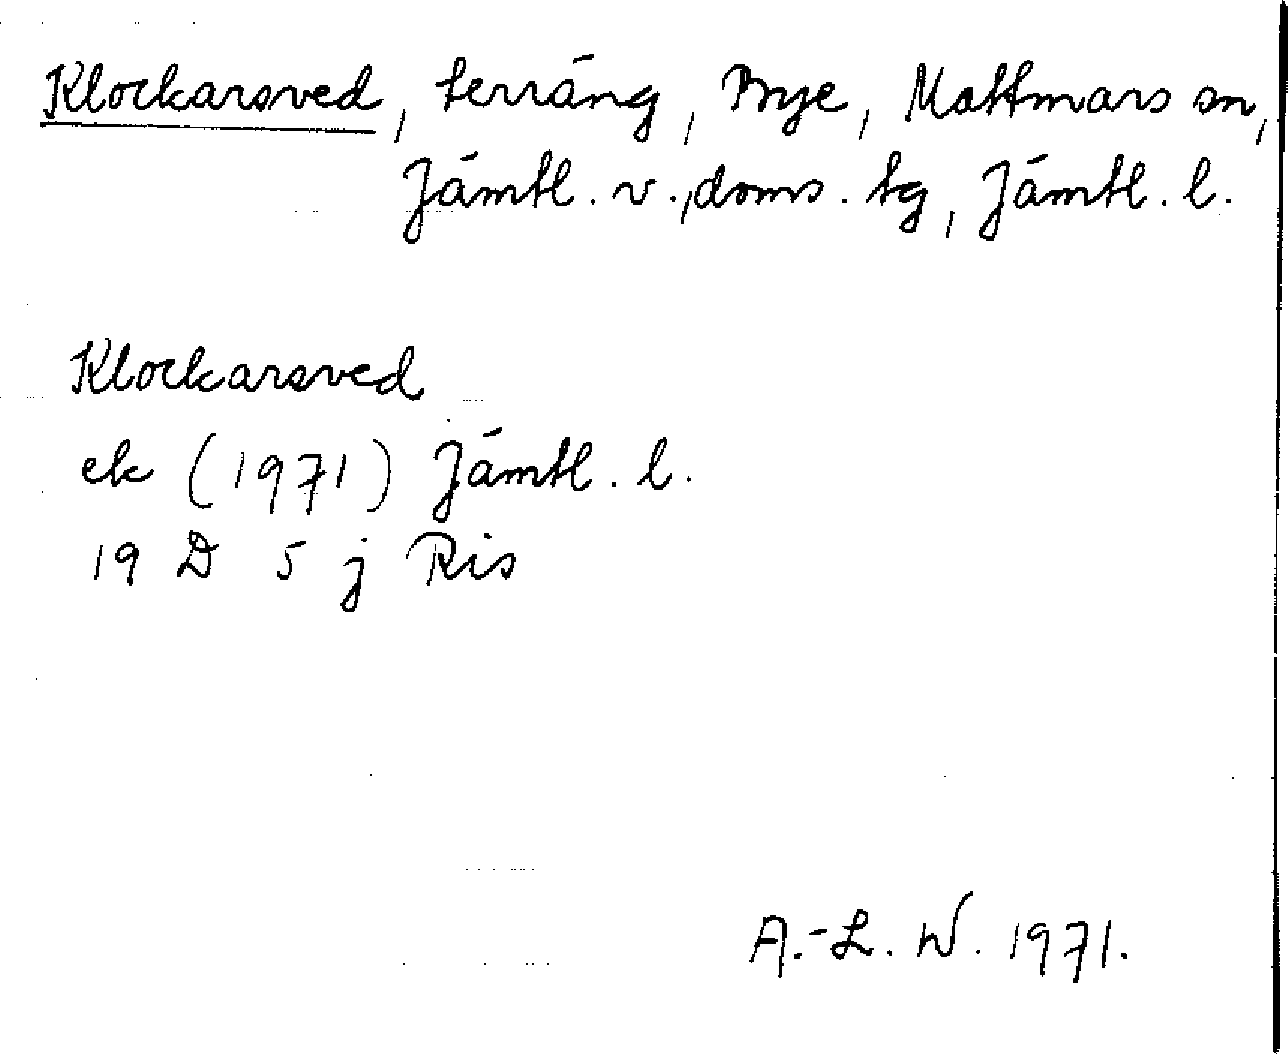 Klockarsved, terräng, Bye, Mattmars sn,
Jämtl. v., doms. tg, Jämtl. l.
Klockarsved
ek (1971) Jämtl. l.
19 D 5 j Ris
A.-L. W. 1971.